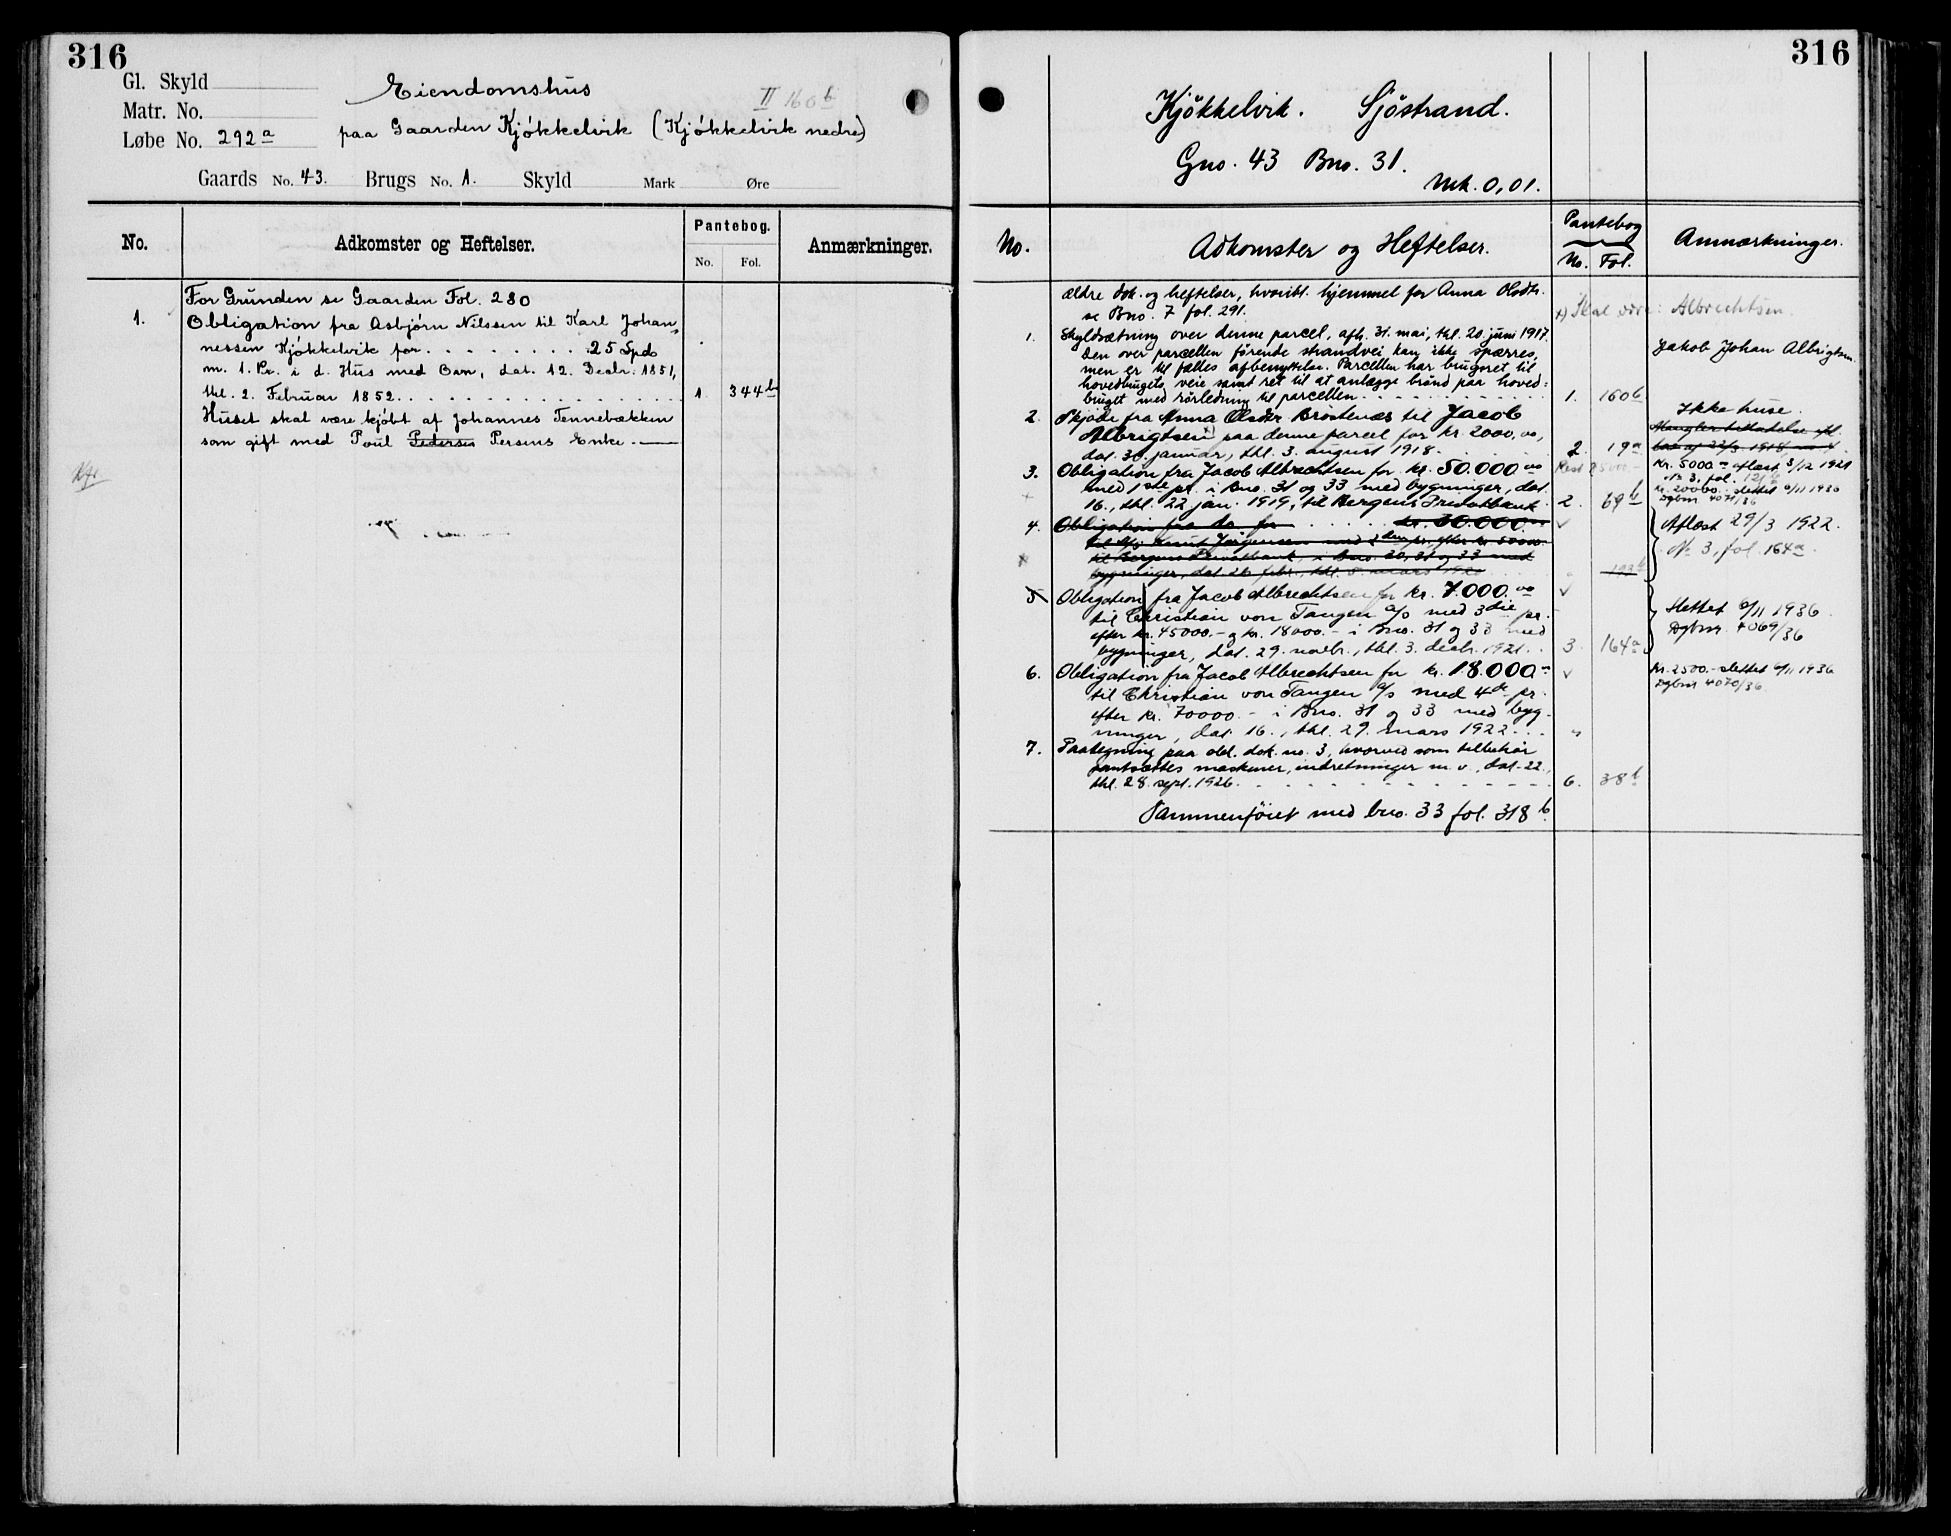 316
Gl. Skyld
Matr. No.
Løbe No. 292a
Eiendomshus
II 160b
paa Gaarden Kjökkelvik (Kjökkelvik nedre)
Gaards No. 43. Brugs No. 1. Skyld Mark Øre
No. Adkomster og Heftelser. Pantebog. No. Fol. Anmærkninger.
For Grunden se Gaarden Fol. 280
1. Obligation fra Asbjørn Nilssen til Karl Johan-
nessen Kjøkkelvik for . . . . . . . . 25 Spd
m. 1. Pr. i d. Hus med Barn, dat. 12. Decbr. 1851,
thl. 2. Februar 1852. . . . . . . . . . . . . 1. 344b
Huset skal være kjöbt af Johannes Tennebækken
som gift med Poul Pedersen Persens Enke. —
316
Kjökkelvik. Sjöstrand.
Gno. 43 Bno. 31.
Mk. 0,01.
No. Adkomster og Heftelser. Pantebog No. Fol. Anmærkninger.
Ældre dok. og heftelser, hvoribl. hjemmel for Anna Olsdtr.
se Bno. 7 fol. 291.
x) Skal være: Albrechtsen.
1. Skyldsætning over denne parcel, afh. 31. mai, thl. 20. juni 1917.
Den over parcellen förende strandvei kan ikke spærres,
Jakob Johan Albrigtsen
men er til fælles afbenyttelse. Parcellen har brugsret til
hovedbrugets veie samt ret til at anlægge brönd paa hoved-
bruget med rörledning til parcellen . . . . . . . 1. 160b
Ikke huse.
2. Skjöde fra Anna Olsdtr Brostenæs til Jacob
Albrigtsen x) paa denne parcel for kr. 2000,00,
dat. 30. januar, thl. 3. august 1918. . . . 2. 19a
Mangler tilladelse efl.
lov af 22/3 1918, no 1.
3. Obligation fra Jacob Albrechtsen for kr. 50.000 00
med 1ste pr. i Bno. 31 og 33 med bygninger, dat.
16., thl. 22 jan. 1919, til Bergens Privatbank. 2. 69b
Kr. 5000 aflæst 3/12 1921
No 3, fol.
kr. 20000.- slettet 6/11 1936
Dgbnr 4071/36
4. Obligation fra do for . . . . . kr. 30.000
til Hj. Knut Jørgensen med 2den pr. efter kr. 50000
til Bergens Privatbank, i Bno. 30, 31 og 33 med
bygninger, dat. 26 febr., thl. 8. mars 1920 . . . " 193b
Aflæst 29/3 1922.
No 3, fol. 164a.
5 Obligation fra Jacob Albrechtsen for kr. 7.000. 00
til Christian von Tangen a/s med 3die pr.
efter kr. 45000.- og kr. 18000.- i Bno. 31 og 33 med
bygninger, dat. 29. novbr., thl. 3. decbr. 1921. . 3. 164a
Slettet 6/11 1936
Dgbnr. 4069/36
6. Obligation fra Jacob Albrechtsen for kr. 18.000
til Christian von Tangen a/s med 4de pr.
efter kr. 70000.- i Bno. 31 og 33 med byg-
ninger, dat. 16., thl. 29. mars 1922 . . . "
Kr. 2500.- slettet 6/11 1936
Dgbnr 4070/36
7. Paategning paa obl. dok. no. 3, hvorved som tilbehör
pantsættes maskiner, indretninger m. v., dat. 22.,
thl. 28. sept. 1926. . . . . . . . . . . . 6. 38b
Sammenföiet med bno. 33 fol. 318b